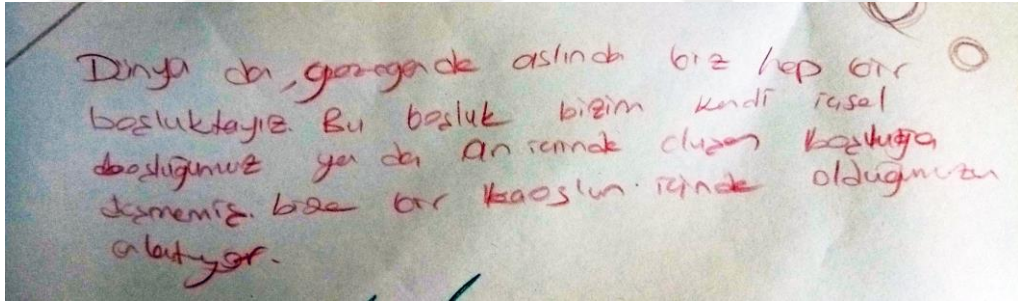 Dünya da, gezegende aslında biz hep bir
boşluktayız. Bu boşluk bizim kendi içsel
boşluğumuz ya da an içinde oluşan boşluğa
düşmemiz. bize bir kaosun içinde olduğumuzu
anlatıyor.